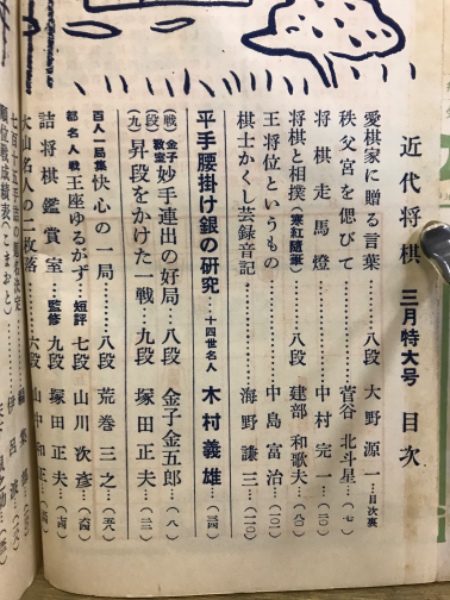 近代将棋 三月特大号 目次
愛棋家に贈る言葉………八段 大野源一…目次裏
秩父宮を偲びて…………菅谷北斗星…(七)
将棋走馬燈…………中村完一…(二〇)
将棋と相撲(寒紅随筆)…八段 建部和歌夫…(八〇)
王将位というもの…………中島富治…(一〇一)
棋士かくし芸録音記…………海野謙三…(一一〇)
平手腰掛け銀の研究…十四世名人 木村義雄…(三四)
(戦)金子教室 妙手連出の好局…八段 金子金五郎…(八)
(九段) 昇段をかけた一戦…九段 塚田正夫…(二二)
百人一局集 快心の一局…………八段 荒巻三之…(五八)
都名人戦 王座ゆるがず…短評 七段 山川次彦…(六四)
詰将棋鑑賞室…監修 九段 塚田正夫…
大山名人の二枚落………六段 山中和正…
順位戦成績表(こまおと)